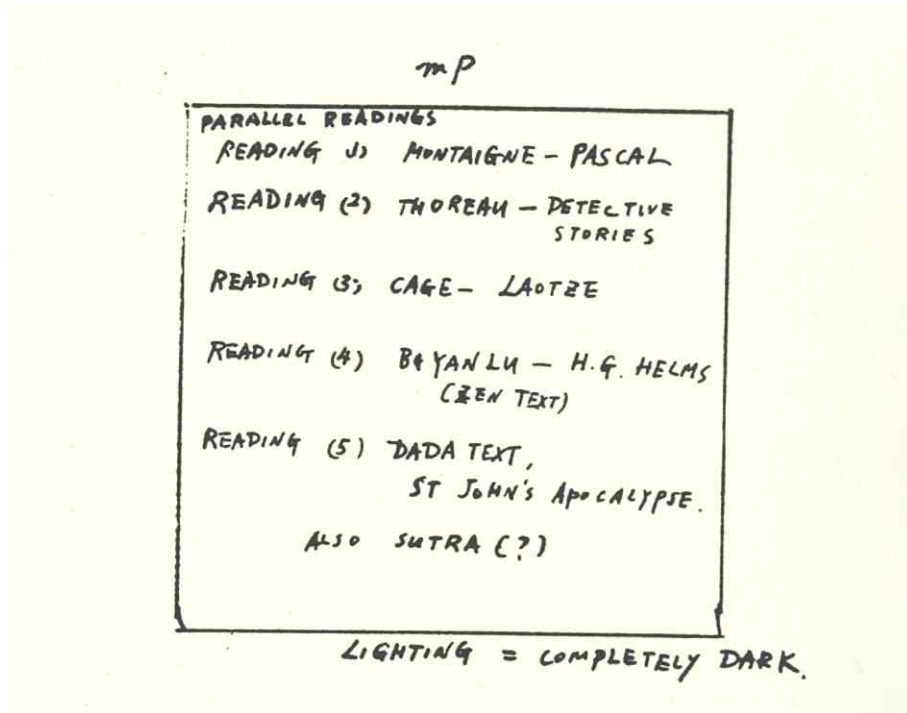 mP
PARALLEL READINGS
READING 1) MONTAIGNE - PASCAL
READING (2) THOREAU - DETECTIVE
STORIES
READING (3) CAGE - LAOTZE
READING (4) BAYANLU - H.G. HELMS
(ZEN TEXT)
READING (5) DADA TEXT,
ST JOHN'S APOCALYPSE.
ALSO SUTRA (?)
LIGHTING = COMPLETELY DARK.